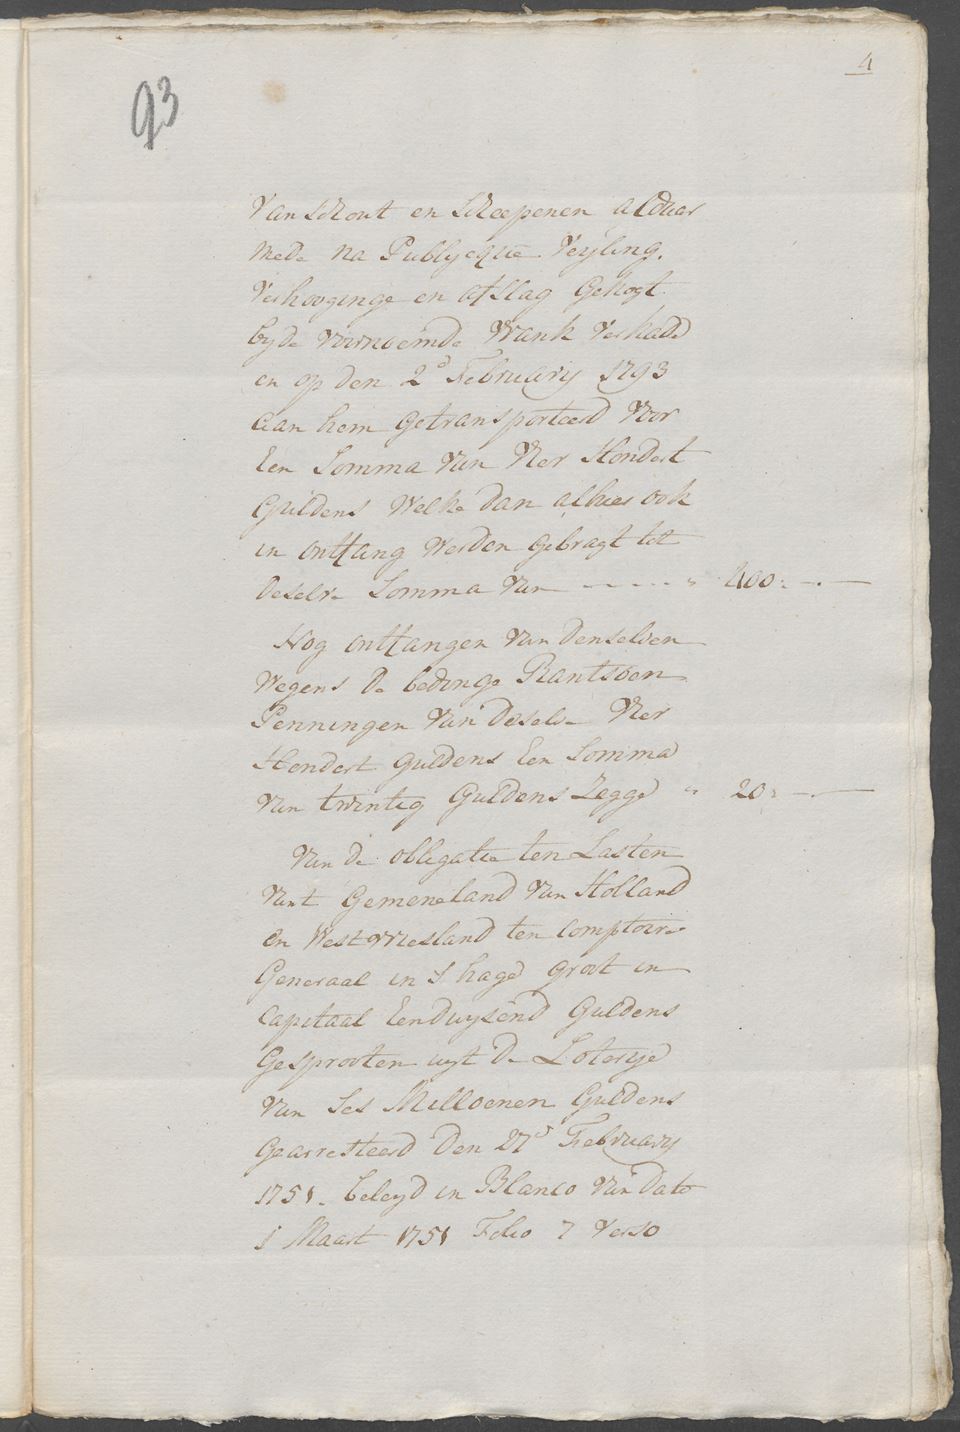 4
93
Van Schout en Scheepenen aldaer
mede na Publycque Veyling.
Verhooginge en afslag Gekogt
by de voornoemde Vrank Verhadd
en op den 2d February 1793
aan hem getransporteerd voor
Een Somma van Vier Hondert
Guldens welke dan alhier ook
in ontfang werden gebragt tot
deselve Somma van - - - - " 400:-.-
Nog ontfangen van denselven
wegens de bedinge Rantsoen
Penningen van deselve Vier
Hondert Guldens Een Somma
van twintig Guldens Zegge " 20:-.-
Van de obligatie ten Lasten
van't Gemeneland van Holland
en Westvriesland ten Comptoire
Generaal in S hage groot in
Capitaal Eenduysend Guldens
Gesprooten uyt de Loterye
van Ses Millioenen Guldens
Gearresteerd Den 27d February
1751. beleyd in Blanco van dato
1 Maart 1751 Folio 7 verso